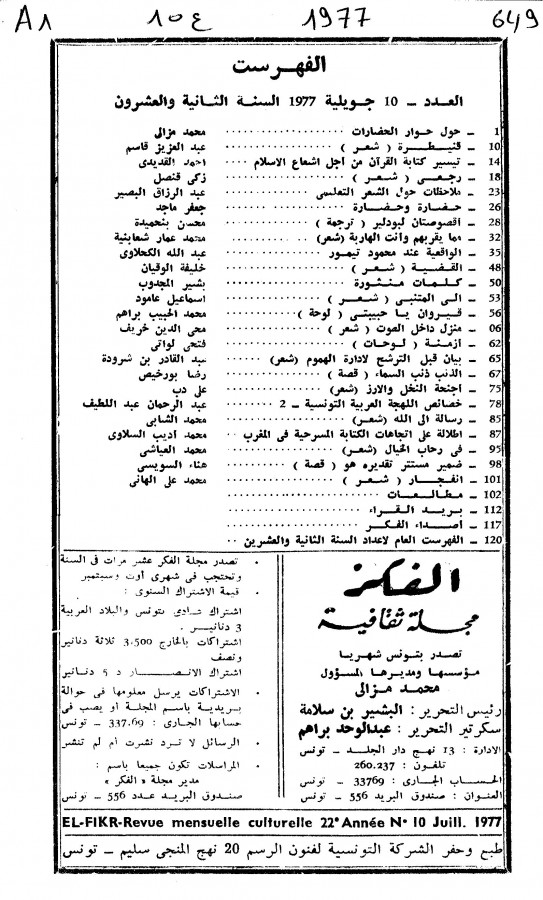 A1 ع 10 1977 649
الفهرست
العدد ـ 10 جويلية 1977 السنة الثانية والعشرون
1 ـ حول حوار الحضارات ............ محمد مزالى
10 ـ قنيطرة ( شعر ) ............ عبد العزيز قاسم
14 ـ تيسير كتابة القرآن من اجل اشعاع الاسلام ... احمد القديدى
18 ـ رجعى ( شعر ) ............ زكى قنصل
23 ـ ملاحظات حول الشعر التعليمى ............ عبد الرزاق البصير
26 ـ حضارة وحضارة ............ جعفر ماجد
28 ـ اقصوصتان لبودلير ( ترجمة ) ............ محسن بنحميدة
32 ـ مما يقربهم وانت الهاربة (شعر) ............ محمد عمار شعابنية
35 ـ الواقعية عند محمود تيمور ............ عبد الله الكحلاوى
48 ـ القضية ( شعر ) ............ خليفة الوقيان
50 ـ كلمات منثورة ............ بشير المجدوب
53 ـ الى المتنبى ( شعر ) ............ اسماعيل عامود
56 ـ قيروان يا حبيبتى ( لوحة ) ............ محمد الحبيب براهم
06 ـ منزل داخل الصوت ( شعر ) ............ محى الدين خريف
62 ـ ازمنة ( لوحات ) ............ فتحى لواتى
65 ـ بيان قبل الترشح لادارة الهموم (شعر) ...... عبد القادر بن شرودة
67 ـ الذنب ذنب السماء ( قصة ) ............ رضا بورخيص
75 ـ اجنحة النخل والارز (شعر) ............ على دب
78 ـ خصائص اللهجة العربية التونسية ـ 2 ...... عبد الرحمان عبد اللطيف
85 ـ رسالة الى الله (شعر) ............ محمد الشابى
87 ـ اطلالة على اتجاهات الكتابة المسرحية فى المغرب .. محمد اديب السلاوى
95 ـ فى رحاب الخيال (شعر) ............ محمد العياشى
98 ـ ضمير مستتر تقديره هو ( قصة ) ............ هناء السويسى
101 ـ انفجار ( شعر ) ............ محمد على الهانى
102 ـ مطالعات ............
112 ـ بريد القراء ............
117 ـ اصداء الفكر ............
120 ـ الفهرست العام لاعداد السنة الثانية والعشرين ..
الفكر
مجلة ثقافية
تصدر بتونس شهريا
مؤسسها ومديرها المسؤول
محمد مزالى
رئيس التحرير : البشير بن سلامة
سكرتير التحرير : عبدالوحد براهم
الادارة : 13 نهج دار الجلد ـ تونس
تلفون : 260.237
الحساب الجارى : 33769 ـ تونس
العنوان : صندوق البريد 556 ـ تونس
• تصدر مجلة الفكر عشر مرات فى السنة
وتحتجب فى شهرى أوت وسبتمبر
• قيمة الاشتراك السنوى :
اشتراك عادى بتونس والبلاد العربية
3 دنانير .
اشتراكات بالخارج 3.500 ثلاثة دنانير
ونصف
اشتراك الانصار د 5 دنانير
• الاشتراكات يرسل معلومها فى حوالة
بريدية باسم المجلة او يصب فى
حسابها الجارى : 337.69 ـ تونس
• الرسائل لا ترد نشرت ام لم تنشر
• المراسلات تكون جميعا باسم :
مدير مجلة « الفكر »
صندوق البريد عدد 556 ـ تونس
EL-FIKR-Revue mensuelle culturelle 22e Année No 10 Juill. 1977
طبع وحفر الشركة التونسية لفنون الرسم 20 نهج المنجى سليم ـ تونس